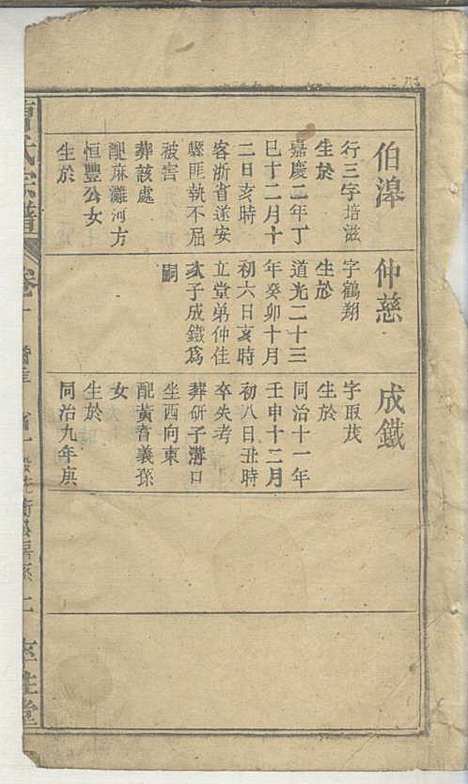 伯滜
行三字培滋
生於
嘉慶二年丁
巳十二月十
二日亥時
客浙省遂安
驟匪執不屈
被害
葬該處
配麻灘河方
恒豐公女
生於
仲慈
字鶴翔
生於
道光二十三
年癸卯十月
初六日亥時
立堂弟仲佳
次子成鐵爲
嗣
成鐵
字取茂
生於
同治十一年
壬申十二月
初八日丑時
卒失考
葬研子溝口
坐西向東
配黃音義孫
女
生於
同治九年庚
氏宗譜
卷